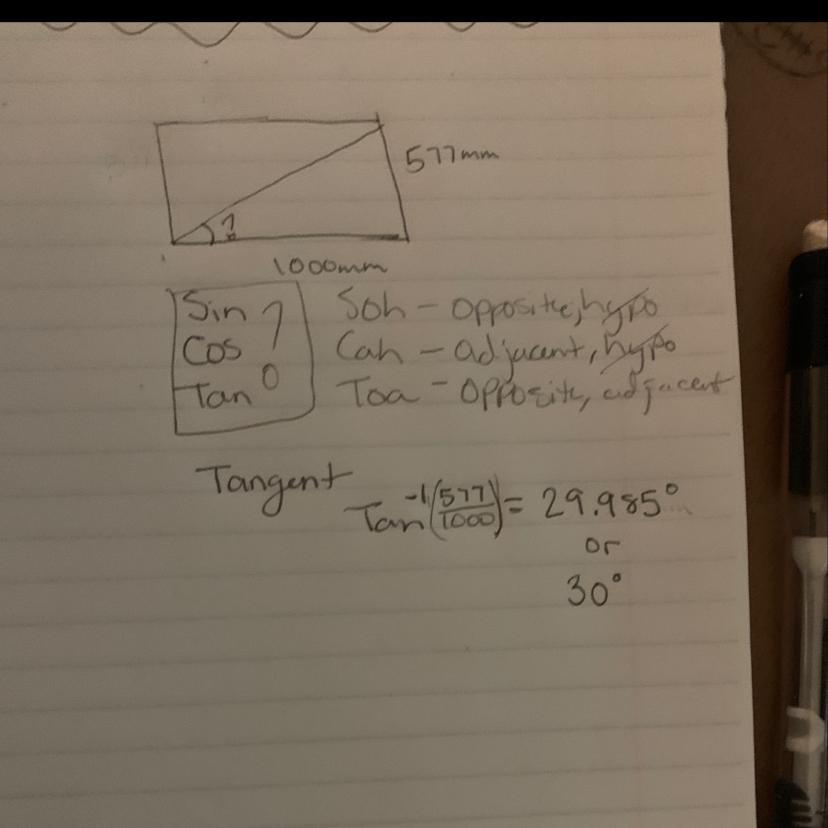 577mm
?
1000mm
Sin ? Soh - opposite, hypo
Cos Cah - adjacent, hypo
Tan⁰ Toa - opposite, adjacent
Tangent
Tan⁻¹(577/1000) = 29.985°
or
30°